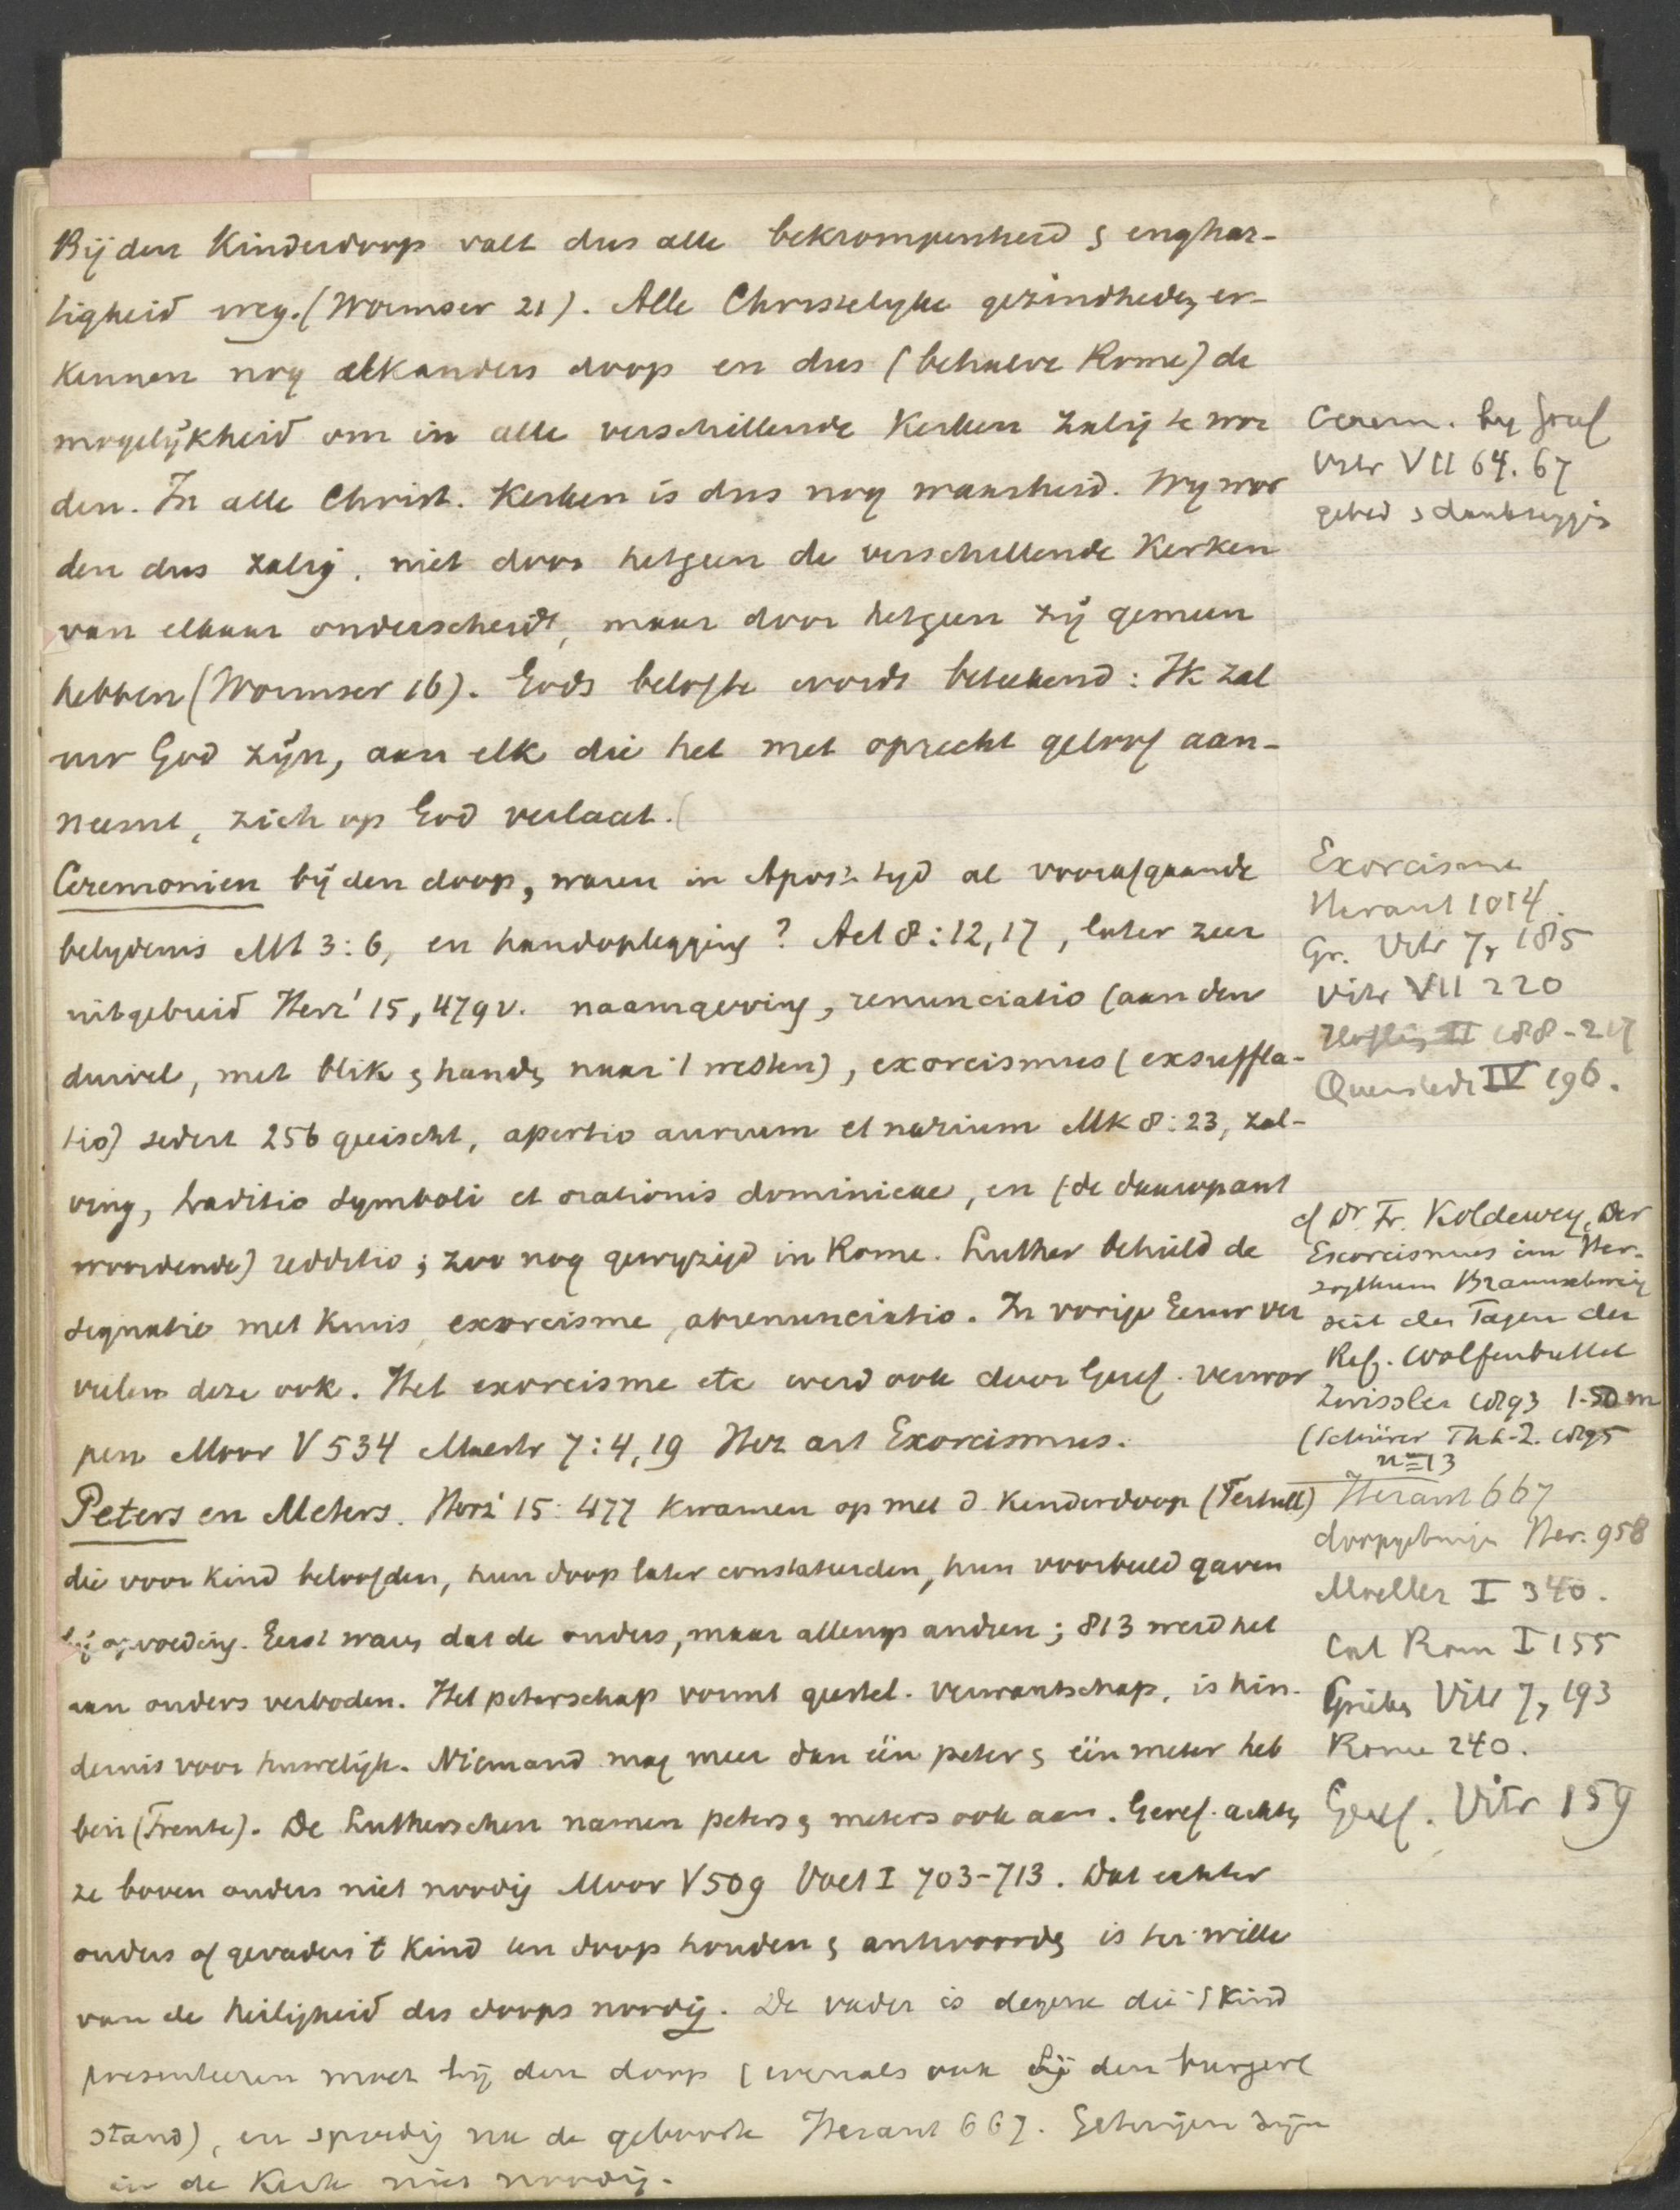 Bij den Kinderdoop valt dus alle bekrompenheid & enghar-
tigheid weg. (Wormser 21). Alle Christelyke gezindheden er-
kennen nog elkanders doop en dus (behalve Rome) de
mogelijkheid om in alle verschillende Kerken zalig te wor
den. In alle Christ. Kerken is dus nog waarheid. Wy wor
den dus zalig, niet door hetgeen de verschillende Kerken
van elkaar onderscheidt, maar door hetgeen zij gemeen
hebben (Wormser 16). Gods belofte wordt beteekend: Ik zal
uw God zijn, aan elk die het met oprecht geloof aan-
neemt, zich op God verlaat.
Ceremonien bij den doop, waren in Apost. tyd al voorafgaande
belydenis Mt 3:6, en handoplegging? Act 8:12,17, later zeer
uitgebreid Herz² 15, 479v. naamgeving, renunciatio (aan den
duivel, met blik & handen naar 't westen), exorcismus (exsuffla-
tio) sedert 256 geëischt, apertio aurium et narium Mk 8:23, zal-
ving, traditio symboli et orationis dominicae, en (de daarop ant
woordende) redditio; zoo nog gewyzigd in Rome. Luther behield de
signatio met kruis, exorcisme, abrenunciatio. In vorige Eeuw ver
vielen deze ook. Het exorcisme etc werd ook door Geref. verwor
pen Moor V 534 Mastr 7:4,19 Herz art Exorcismus.
Peters en Meters. Herz² 15:477 kwamen op met d. Kinderdoop (Tertull)
die voor kind beloofden, hun doop later constateerden, hun voorbeeld gaven
bij opvoeding. Eerst waren dat de ouders, maar allengs andren; 813 werd het
aan ouders verboden. Het peterschap vormt geestel. verwantschap, is hin-
dernis voor huwelijk. Niemand mag meer dan één peter & één meter heb
ben (Trente). De Lutherschen namen peters & meters ook aan. Geref. achten
ze boven ouders niet noodig Moor V 509 Voet I 703-713. Dat echter
ouders of gevaders 't Kind ten doop houden & antwoorden is ter wille
van de heiligheid des doops noodig. De vader is degene die 't Kind
presenteeren moet bij den doop (evenals ook bij den burgerl
stand), en spoedig na de geboorte Heraut 667. Getuigen zijn
in de Kerk niet noodig.
Cerem. by Geref
Vitr VII 64. 67
gebed & dankzegging
Exorcisme
Heraut 1014.
Gr. Vitr 7, 185
Vitr VII 220
Höfling II 188-217
Quenstedt IV 196.
cf Dr. Fr. Koldewey, Der
Exorcismus im Her-
zogthum Braunschweig
seit den Tagen der
Ref. Wolfenbuttel
Zwissler 1893 1.50 m
(Schürer Th L-Z. 1895
nº 13
Heraut 667
doopgetuigen Her. 958
Moeller I 340.
Cat Rom I 155
Grieken Vitr 7, 193
Rome 240.
Geref. Vitr 159